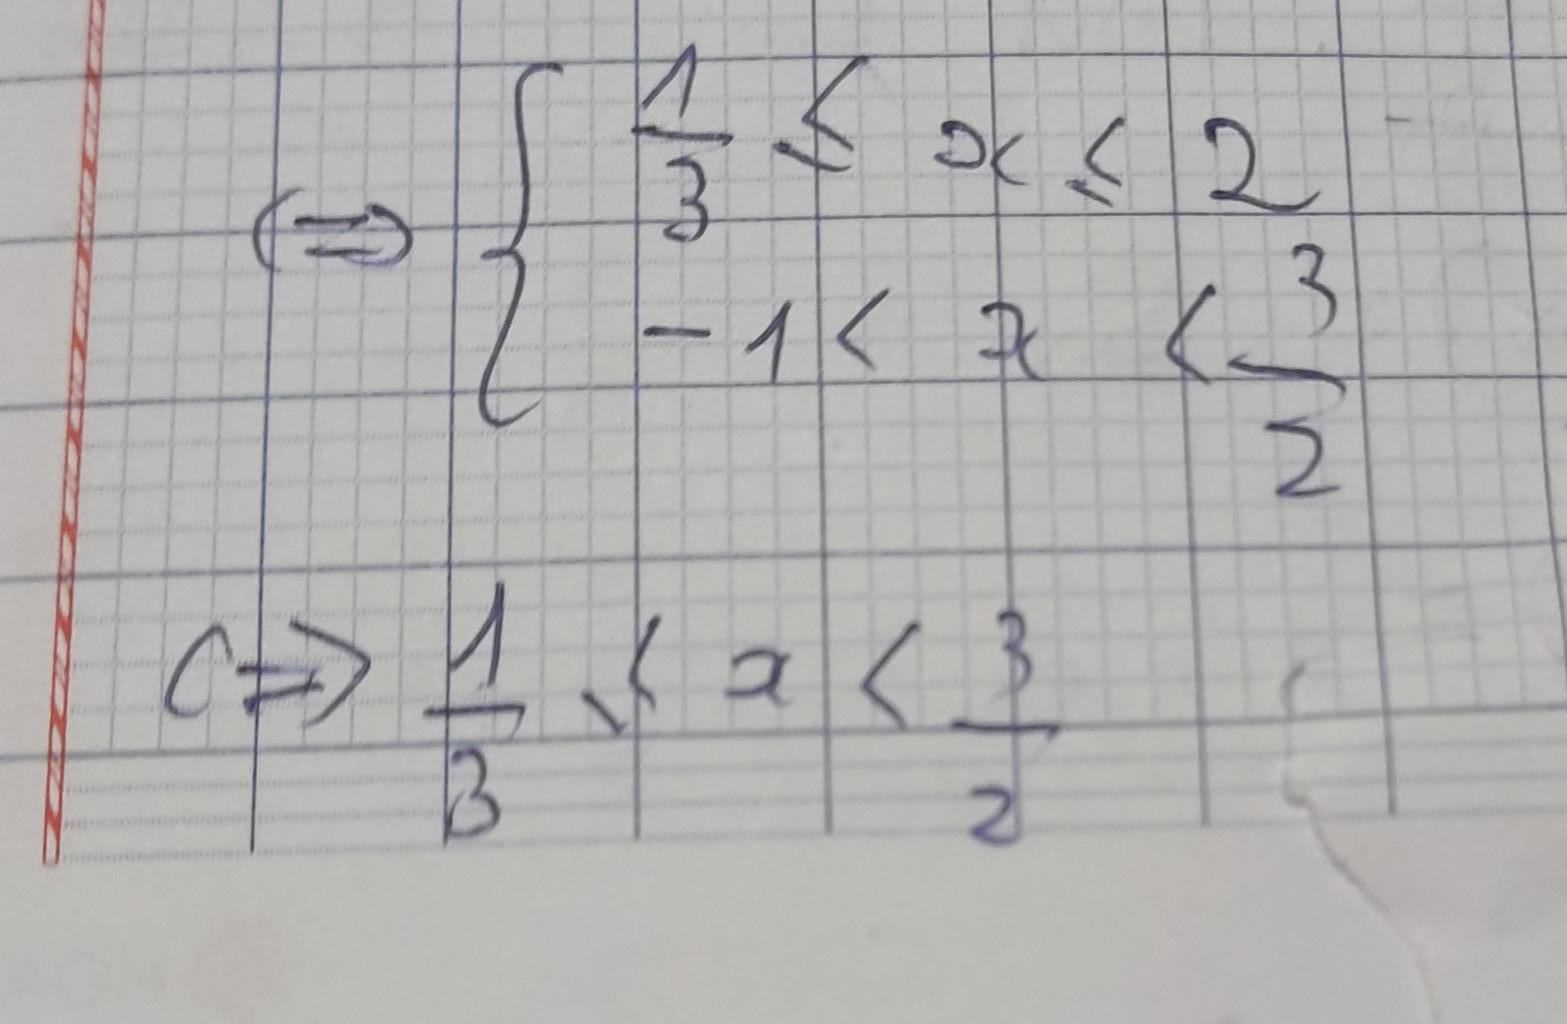 ⟺ { 1/3 ≤ x ≤ 2
-1 < x < 3/2
⟺ 1/3 ≤ x < 3/2